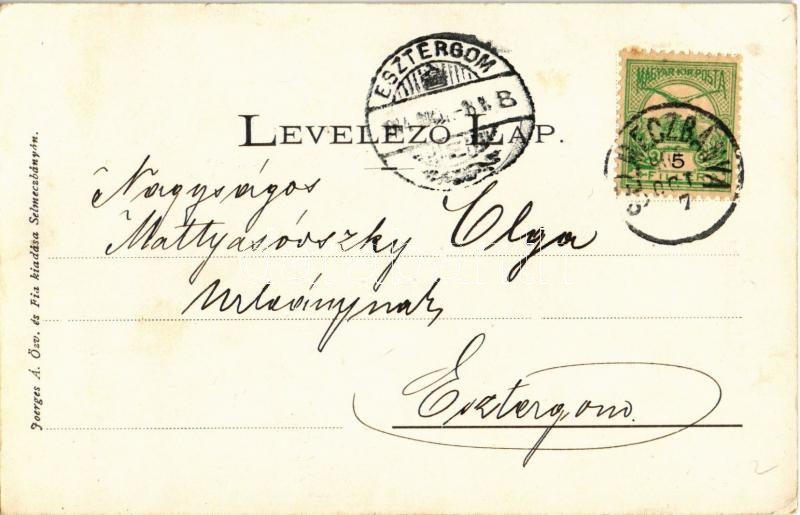 ESZTERGOM
B
MAGYAR KIR. POSTA
5
FILLÉR
SELMECZBÁNYA
OKT
7
LEVELEZŐ LAP.
Nagyságos
Mattyasóvszky Olga
Urleánynak
Esztergom
Joerges Á. Özv. és Fia kiadása Selmeczbányán.